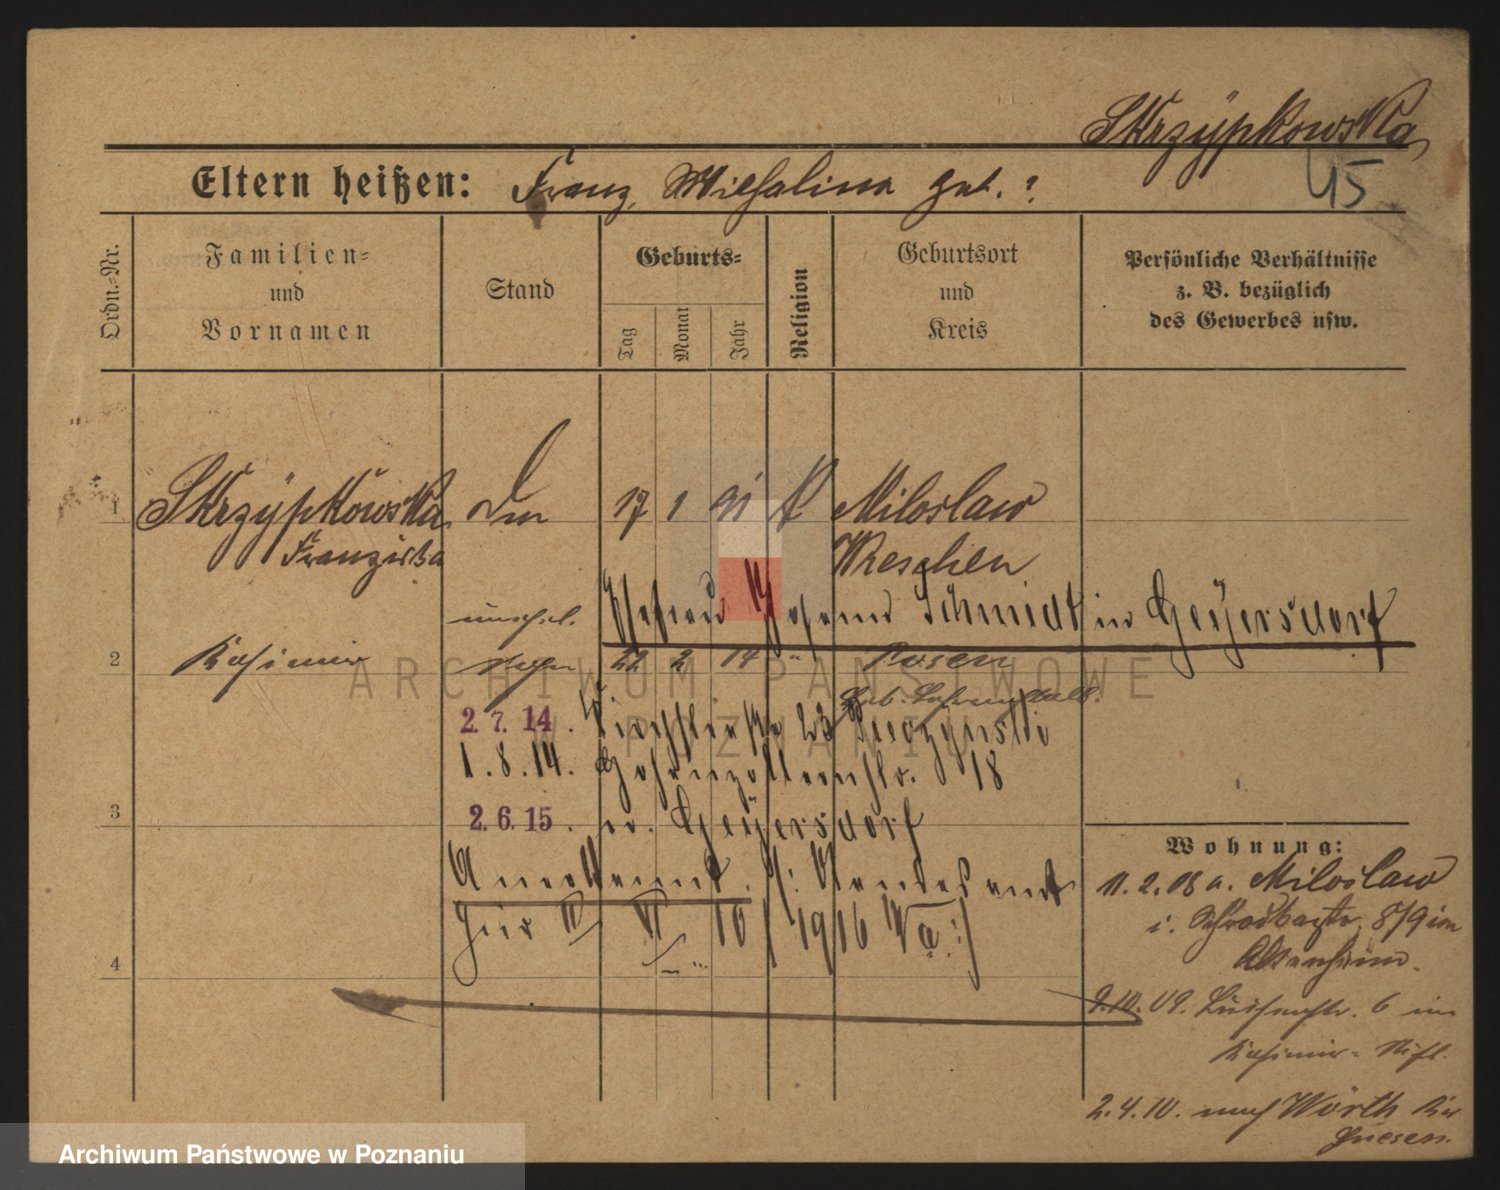 Skrzypkowska
45
Eltern heißen: Franz, Michalina geb. ?
Ordn.-Nr.
Familien-
und
Vornamen
Stand
Geburts-
Tag
Monat
Jahr
Religion
Geburtsort
und
Kreis
Persönliche Verhältnisse
z. B. bezüglich
des Gewerbes usw.
1
Skrzypkowska
Franziska
17 1 91 k
Miloslaw
Wreschen
Ehefrau Johann Schmidt in Geyersdorf
2
Kasimir
unehel.
Sohn
22 2 14 "
Posen
2.7.14. 23
1.8.14. Hohenzollernstr. 18
3
2.6.15. n. Geyersdorf
Anerkennt.
10/1916 Va :/
4
Wohnung:
11.2.08 a. Miloslaw
i. 8/9 im
9.10.09. Luisenstr. 6 im
Kasimir-
2.4.10. nach Wörth Kr.
ARCHIWUM PAŃSTWOWE
W POZNANIU
Archiwum Państwowe w Poznaniu